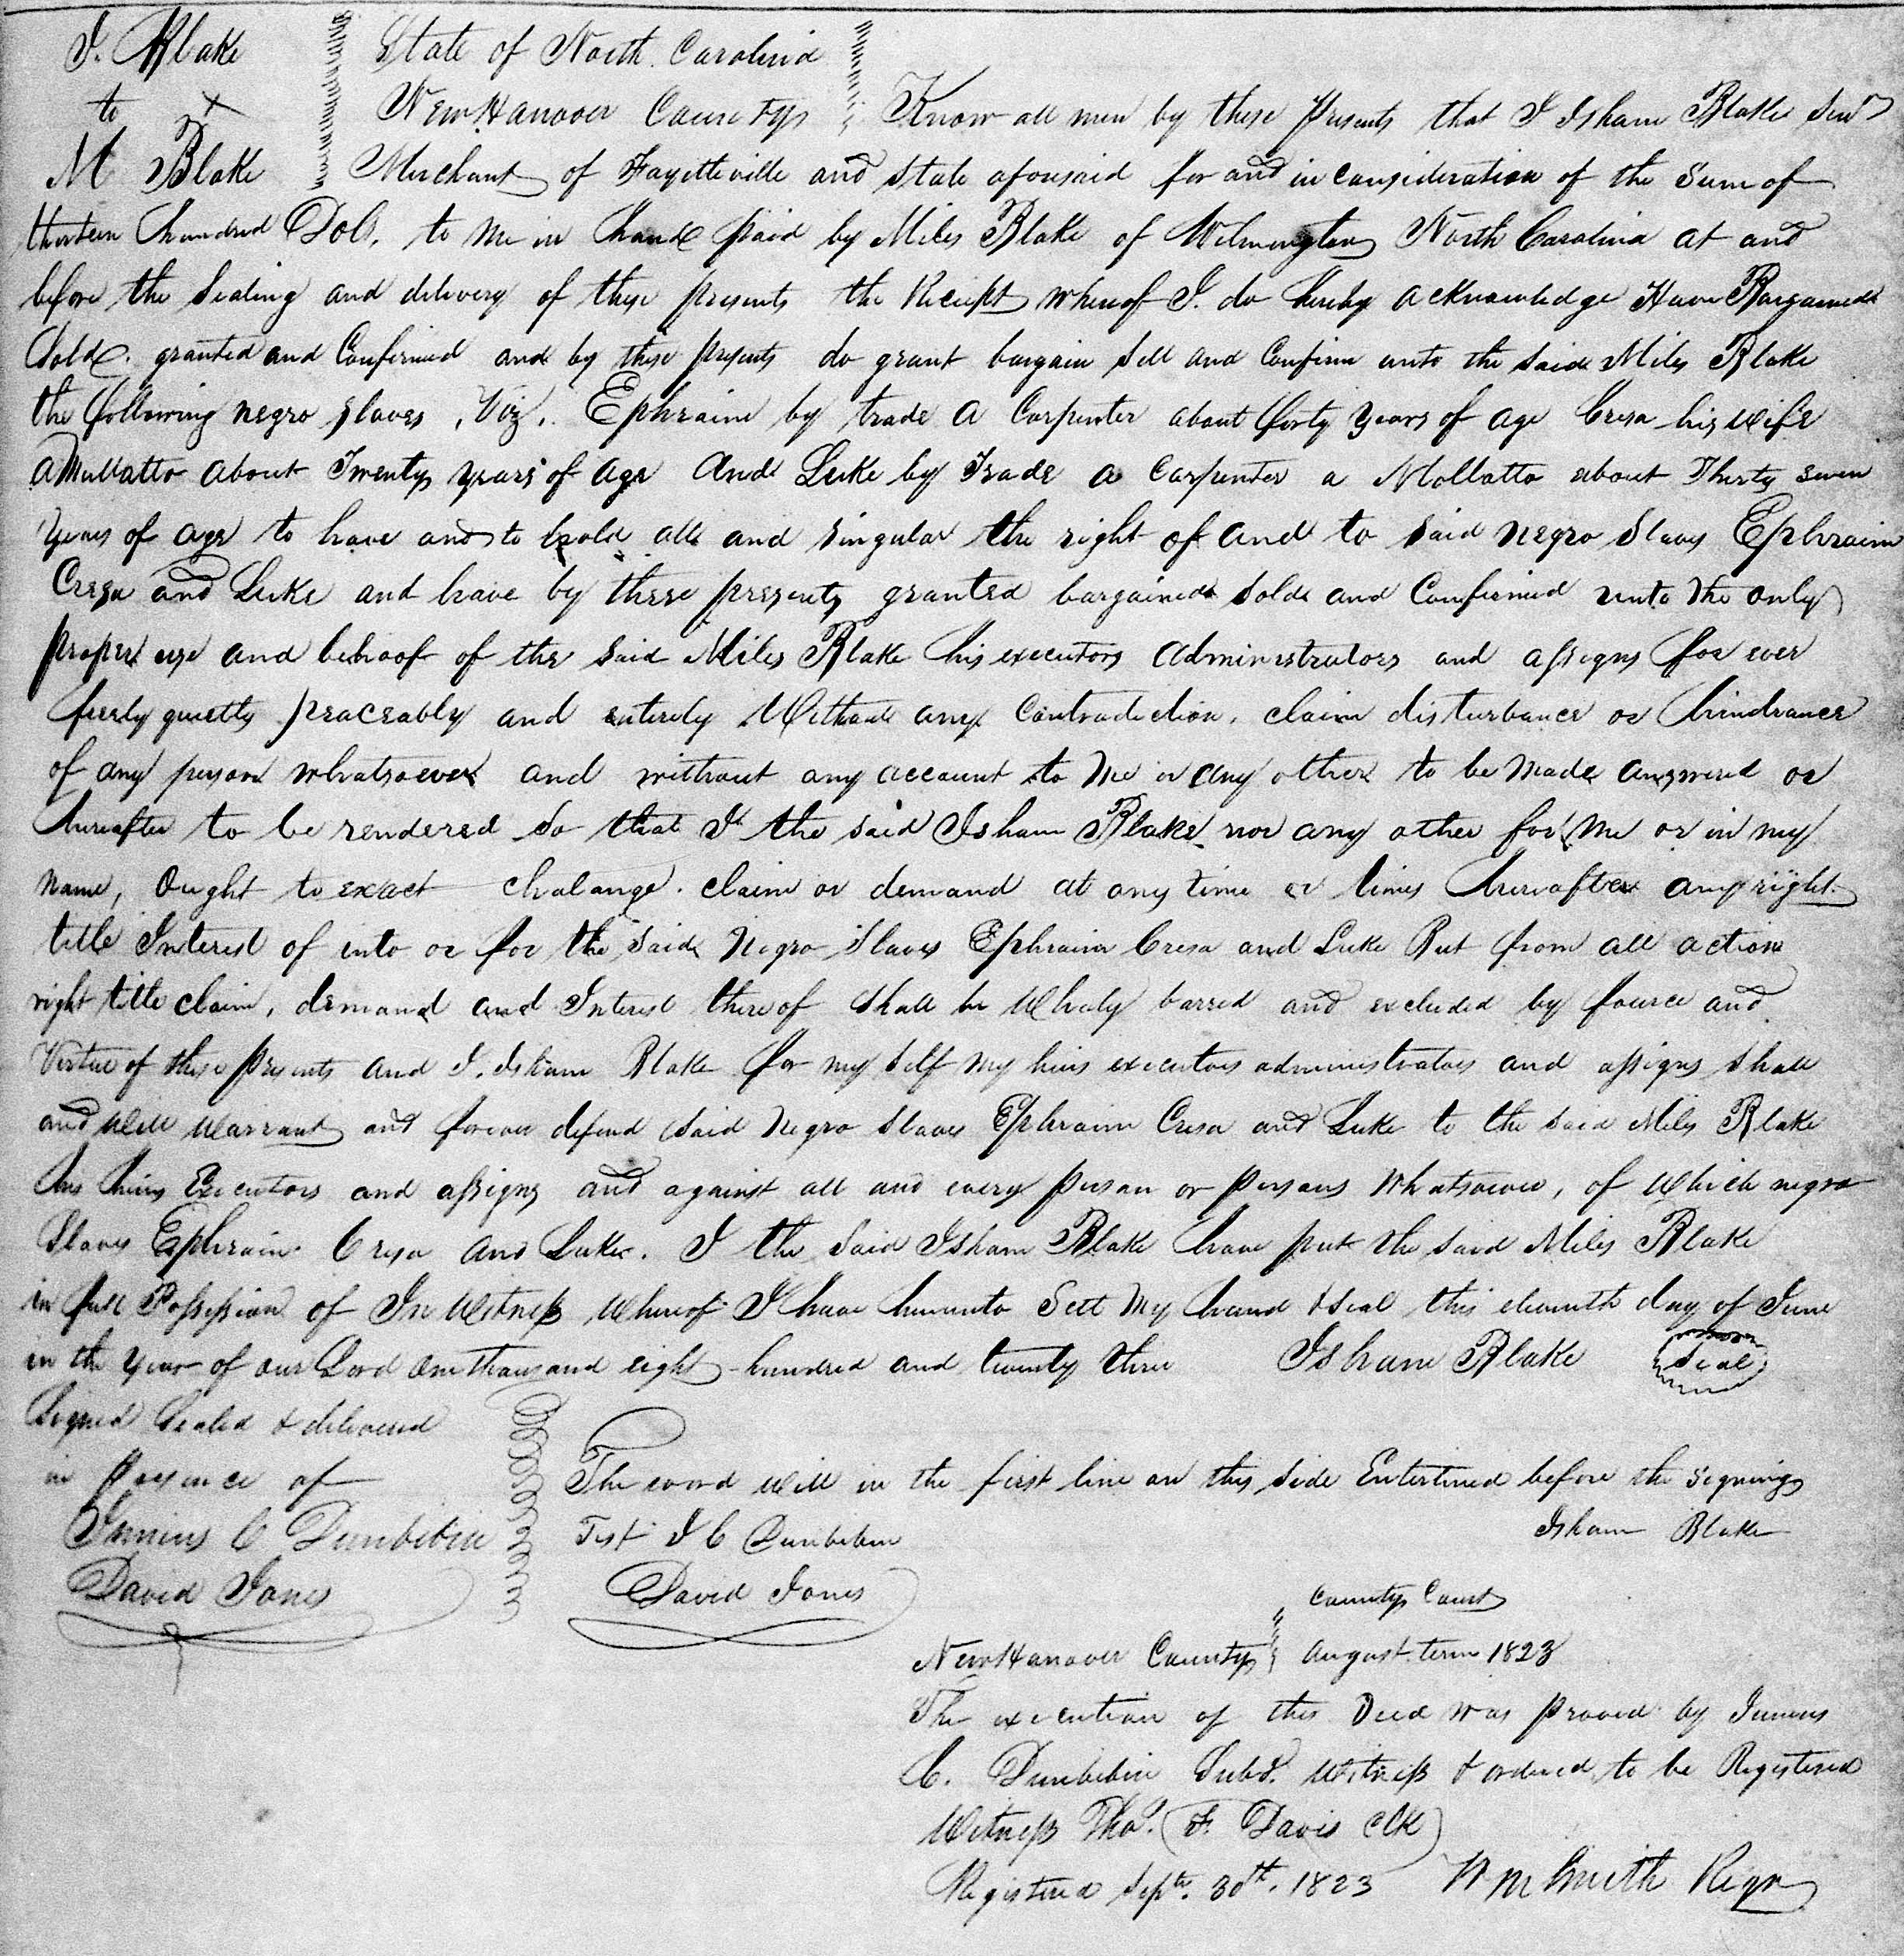 I. Blake
to
M Blake
State of North Carolina
New Hanover County Know all men by these Presents that I Isham Blake Senr
Merchant of Fayetteville and State aforesaid for and in consideration of the Sum of
thirteen hundred Dols. to me in hand paid by Miles Blake of Wilmington North Carolina at and
before the Sealing and delivery of these presents the Receipt whereof I. do hereby acknowledge Have Bargained
Sold. granted and Confirmed and by these presents do grant bargain Sell and Confirm unto the said Miles Blake
the following negro slaves, Viz. Ephraim by trade a Carpenter about forty years of age Cresa his wife
a Mullatto about Twenty years of age And Luke by Trade a Carpenter a Mollatto about Thirty seven
Years of age to have and to hold all and singular the right of and to said negro Slaves Ephraim
Cresa and Luke and have by these presents granted bargained Sold and Confirmed unto the only
proper use and behoof of the said Miles Blake his executors administrators and assigns for ever
freely quietly peaceably and entirely Without any Contradiction, claim disturbance or hindrance
of any person whatsoever and without any account to me or any other to be Made answered or
hereafter to be rendered so that I the said Isham Blake nor any other for me or in my
name, Ought to exact chalange. claim or demand at any time or times hereafter any right
title Interest of into or for the said Negro Slaves Ephraim Cresa and Luke But from all action
right title claim, demand and Interest thereof shall be Wholy barred and excluded by fource and
Virtue of these Presents and I. Isham Blake for my self my heirs executors administrators and assigns shall
and will warrant and forever defend said Negro Slaves Ephraim Cresa and Luke to the said Miles Blake
his heirs Executors and assigns and against all and every person or persons Whatsoever, of Which negro
Slaves Ephraim Cresa and Luke. I the said Isham Blake have put the said Miles Blake
in full Possession of In Witness Whereof I have hereunto Sett My hand & seal this eleventh day of June
in the Year of our Lord One thousand eight hundred and twenty three Isham Blake Seal
Signed Sealed & delivered
in presence of
Junius C Dunbibin
David Jones
The word will in the first line on this side Enterlined before the signing
Isham Blake
Test J C Dunbibin
David Jones
County Court
New Hanover County August term 1823
The execution of this Deed was proved by Junius
C. Dunbibin Subs. Witness & ordered to be Registered
Witness Thos. F. Davis Clk
Registered Septr. 30th. 1823 Wm Smith Regr